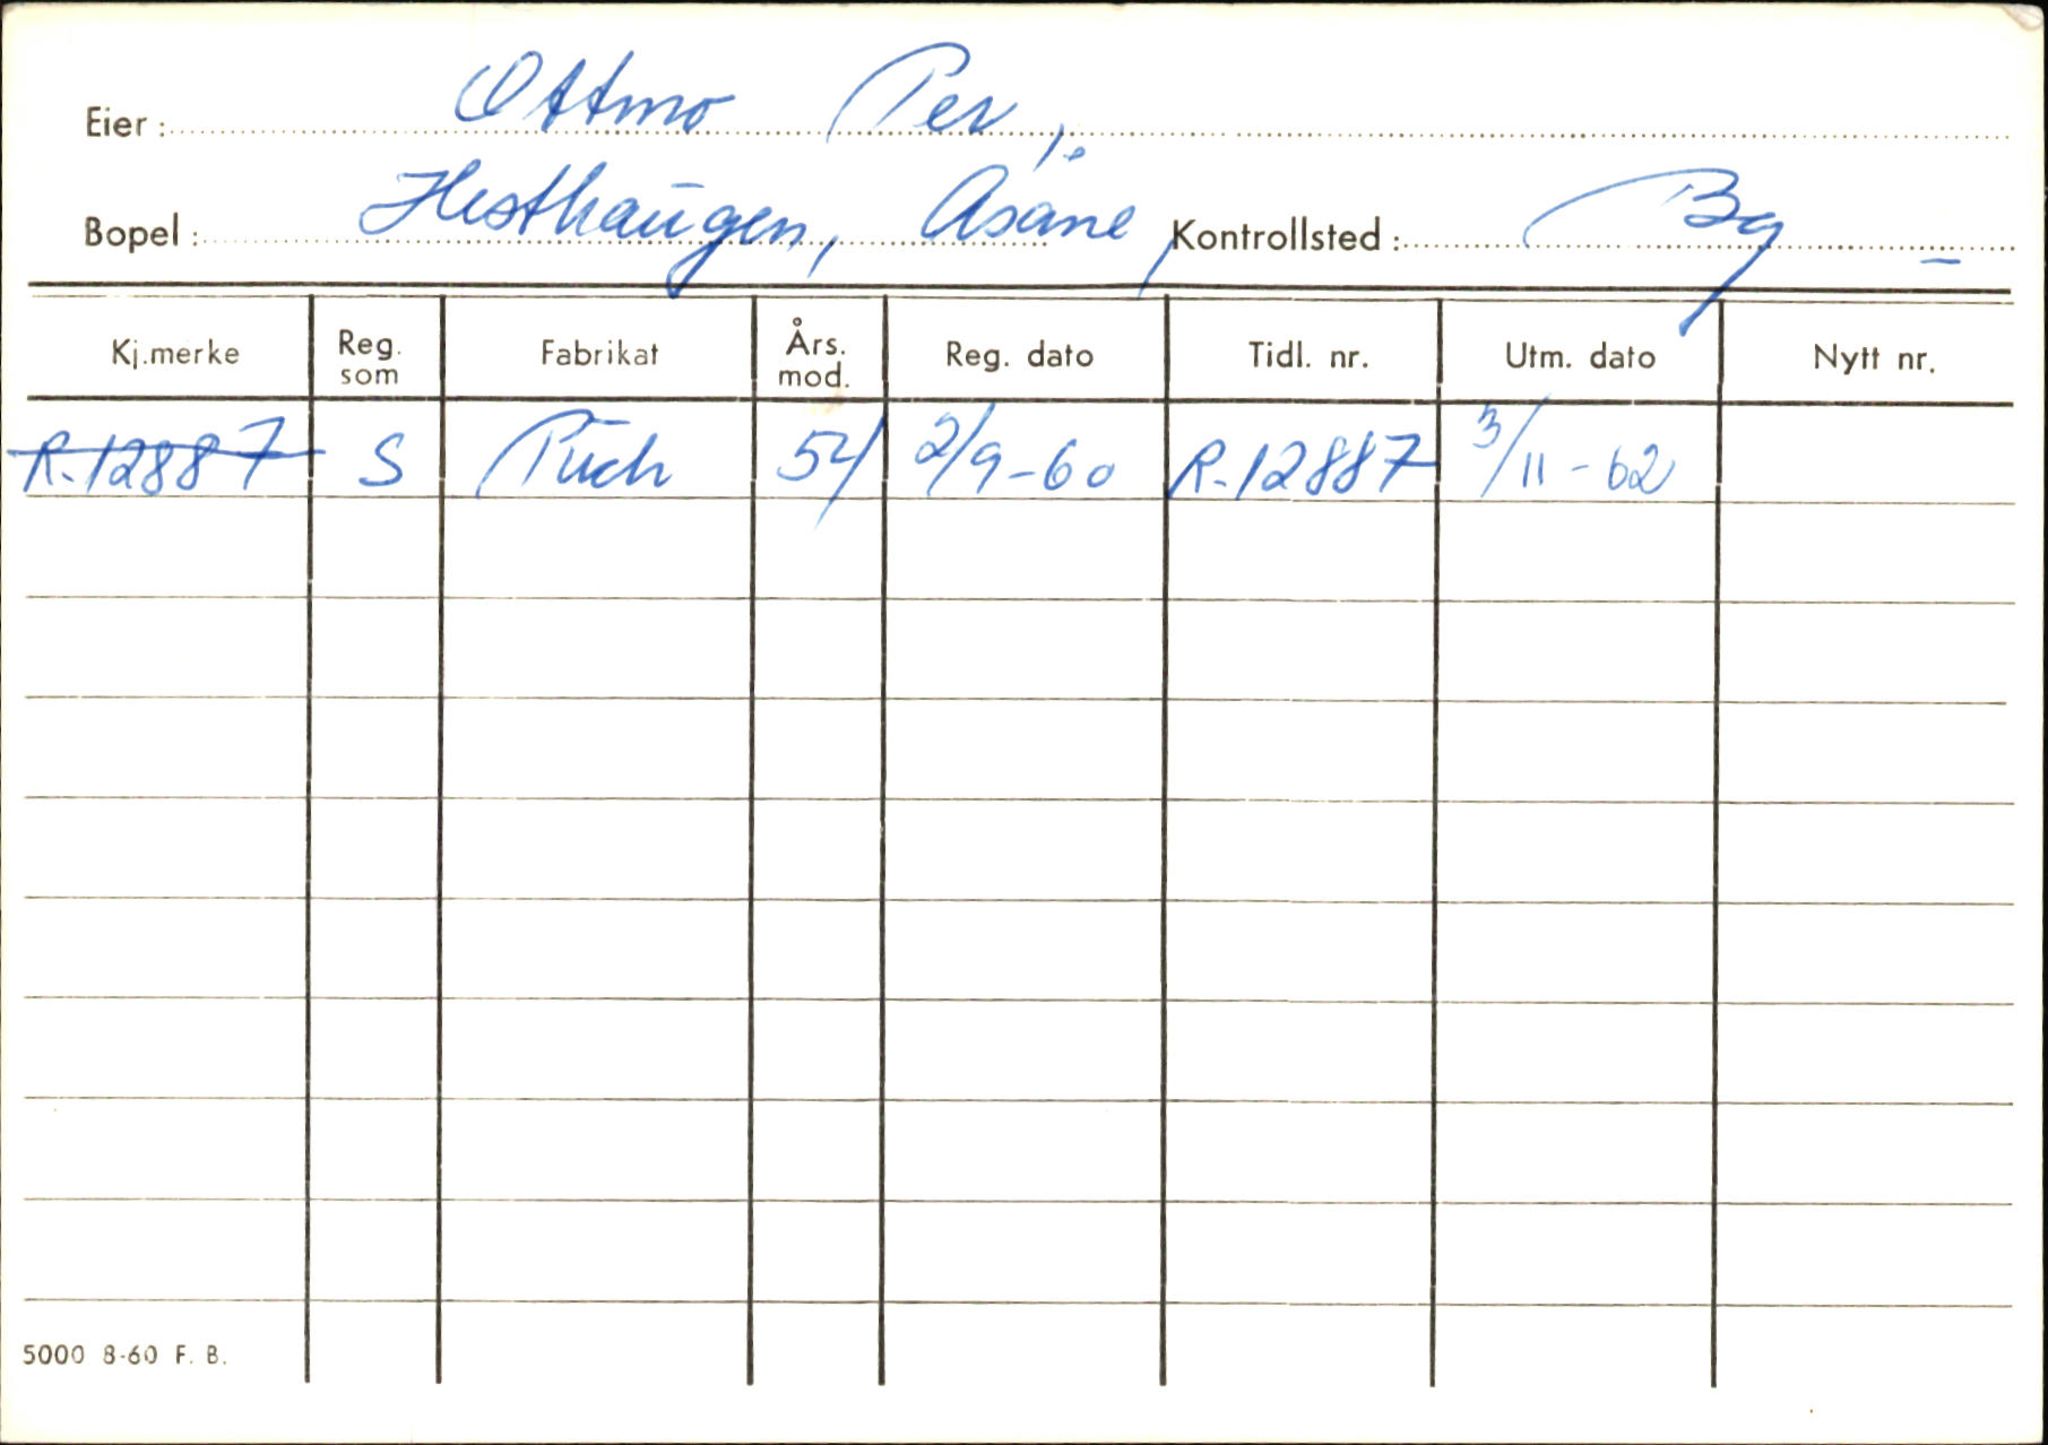 Eier: Ottmo Per,
Bopel: Hesthaugen, Åsane, Kontrollsted: Bg
Kj.merke Reg. som Fabrikat Års. mod. Reg. dato Tidl. nr. Utm. dato Nytt nr.
R-12887 S Puch 54 2/9-60 R-12887 3/11-62
5000 8-60 F. B.